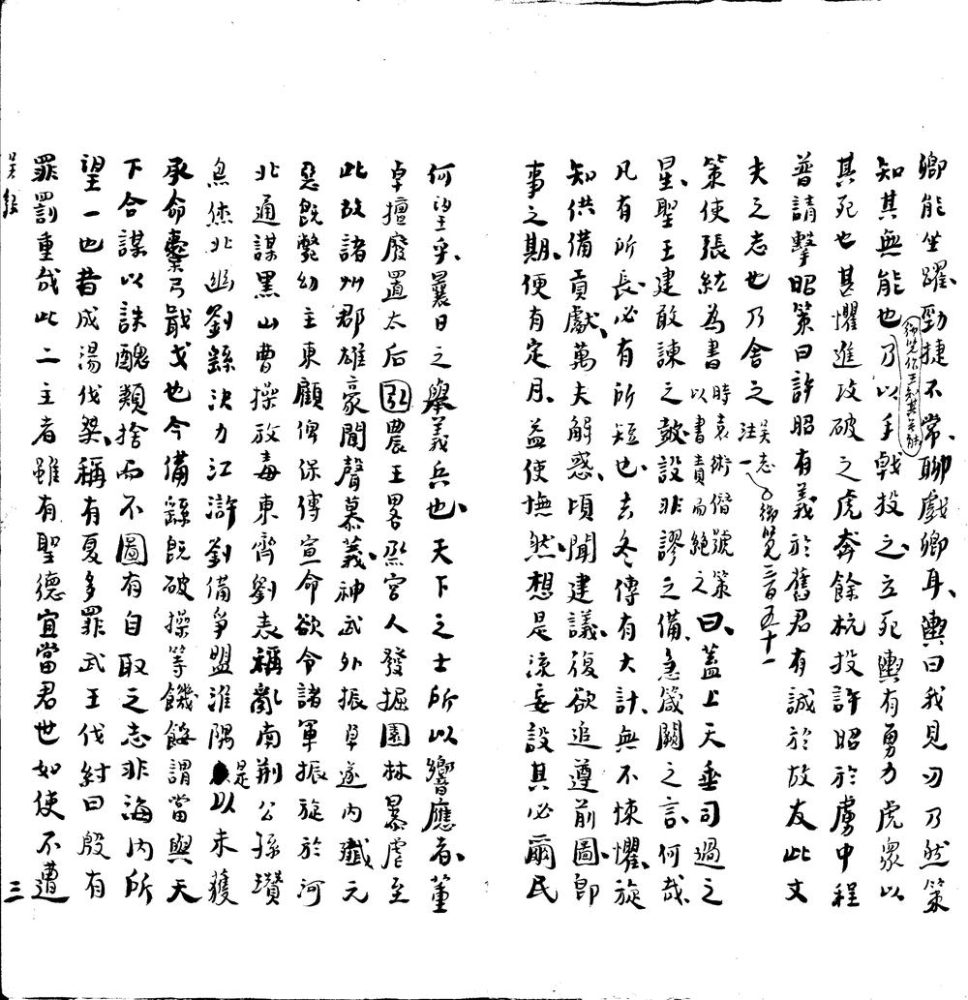 卿能坐躍勁捷不常聊戲卿耳輿曰我見刃乃然策
知其無能也乃以手戟投之立死輿有勇力虎眾以
其死也甚懼進攻破之虎奔餘杭投許昭於虜中程
普請擊昭策曰許昭有義於舊君有誠於故友此丈
夫之志也乃舍之 吳志一注 御覽三百五十一
策使張紘為書 時袁術僭號策以書責而絕之 曰蓋上天垂司過之
星聖王建敢諫之皷設非謬之備急箴闕之言何哉
凡有所長必有所短也去冬傳有大計無不悚懼旋
知供備貢獻萬夫解惑頃聞建議復欲追遵前圖即
事之期便有定月益使憮然想是流妄設其必爾民
何望乎曩日之舉義兵也天下之士所以響應者董
卓擅廢置太后弘農王畧烝宮人發掘園林暴虐至
此故諸州郡雄豪聞聲慕義神武外振卓遂內殲元
惡既斃幼主東顧俾保傅宣命欲令諸軍振旅於河
北通謀黑山曹操放毒東齊劉表稱亂南荆公孫瓚
炰烋北幽劉繇決力江滸劉備爭盟淮隅是以未獲
承命櫜弓戢戈也今備繇既破操等饑餒謂當與天
下合謀以誅醜類捨而不圖有自取之志非海內所
望一也昔成湯伐桀稱有夏多罪武王伐紂曰殷有
罪罰重哉此二主者雖有聖德宜當君世如使不遭
三